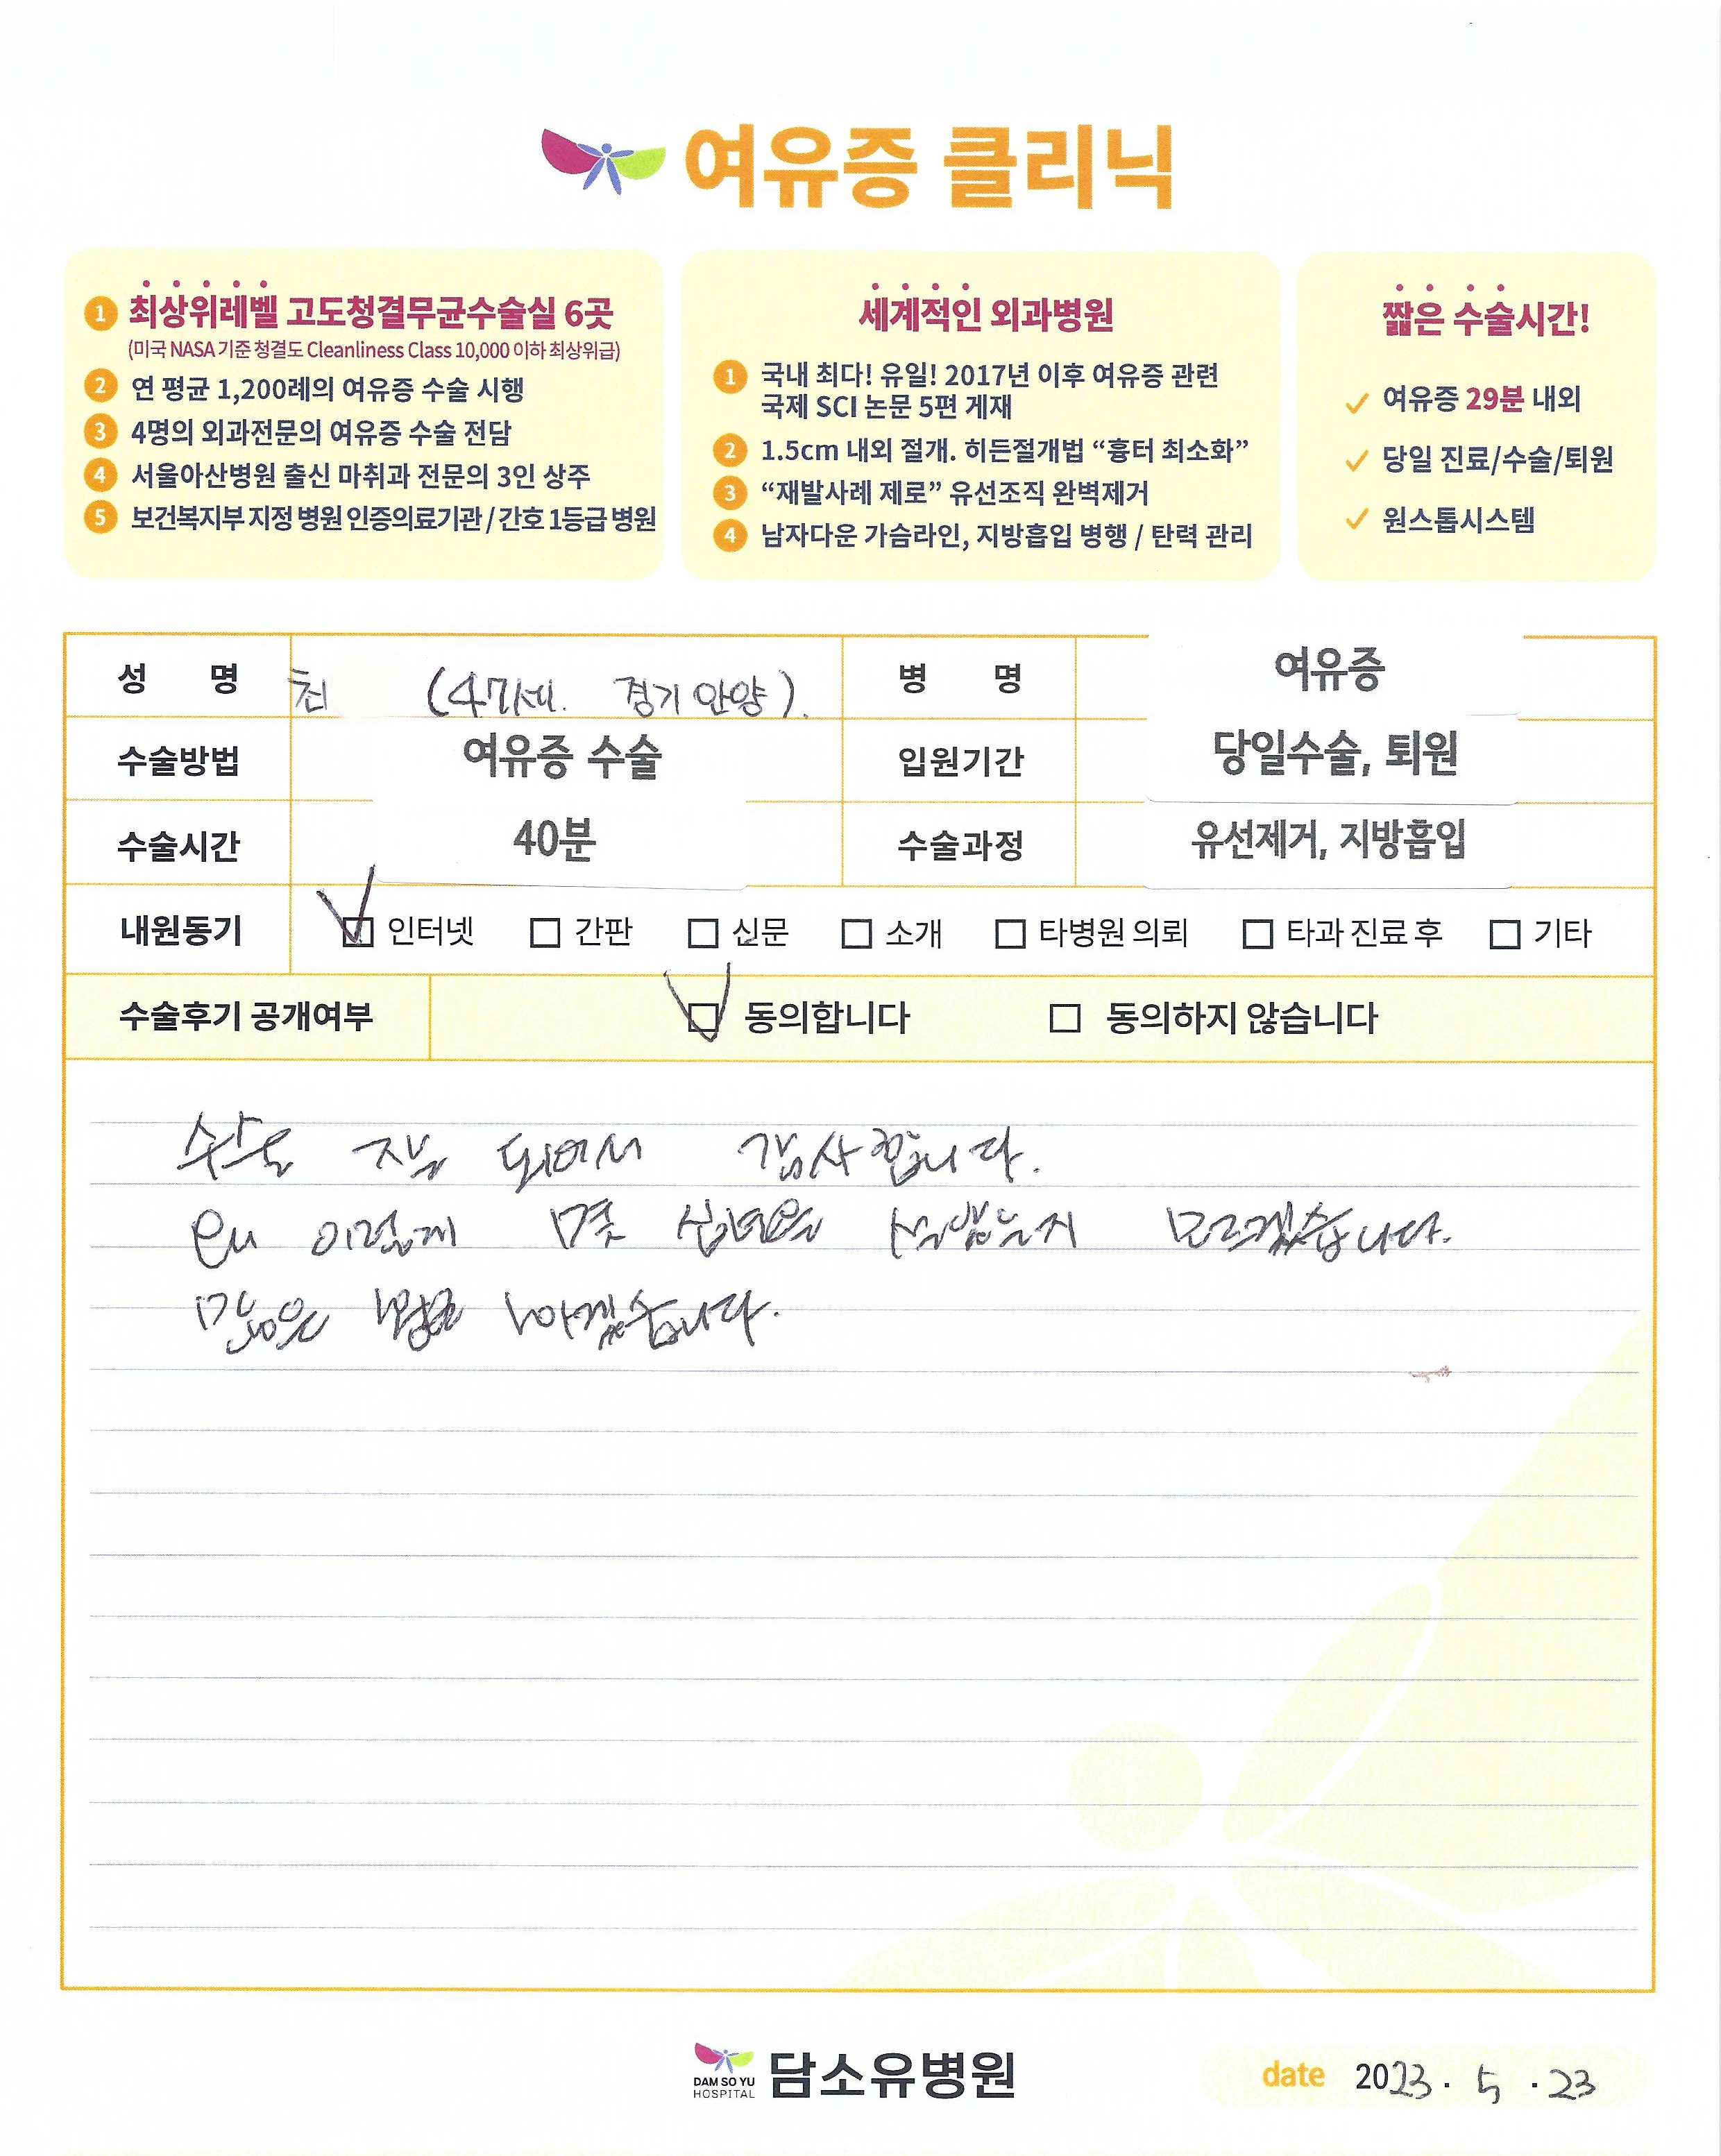 여유증 클리닉
1 최상위레벨 고도청결무균수술실 6곳
(미국 NASA 기준 청결도 Cleanliness Class 10,000 이하 최상위급)
2 연 평균 1,200례의 여유증 수술 시행
3 4명의 외과전문의 여유증 수술 전담
4 서울아산병원 출신 마취과 전문의 3인 상주
5 보건복지부 지정 병원 인증의료기관 / 간호 1등급 병원
세계적인 외과병원
1 국내 최다! 유일! 2017년 이후 여유증 관련
국제 SCI 논문 5편 게재
2 1.5cm 내외 절개. 히든절개법 “흉터 최소화”
3 “재발사례 제로” 유선조직 완벽제거
4 남자다운 가슴라인, 지방흡입 병행 / 탄력 관리
짧은 수술시간!
여유증 29분 내외
당일 진료/수술/퇴원
원스톱시스템
성 명 최 (47세. 경기 안양). 병 명 여유증
수술방법 여유증 수술 입원기간 당일수술, 퇴원
수술시간 40분 수술과정 유선제거, 지방흡입
내원동기 인터넷 간판 신문 소개 타병원 의뢰 타과 진료 후 기타
수술후기 공개여부 동의합니다 동의하지 않습니다
수술 잘 되어서 감사합니다.
왜 이렇게 몇 십년을 모르겠습니다.
많은 났습니다.
DAM SO YU
HOSPITAL
담소유병원
date 2023. 5. 23